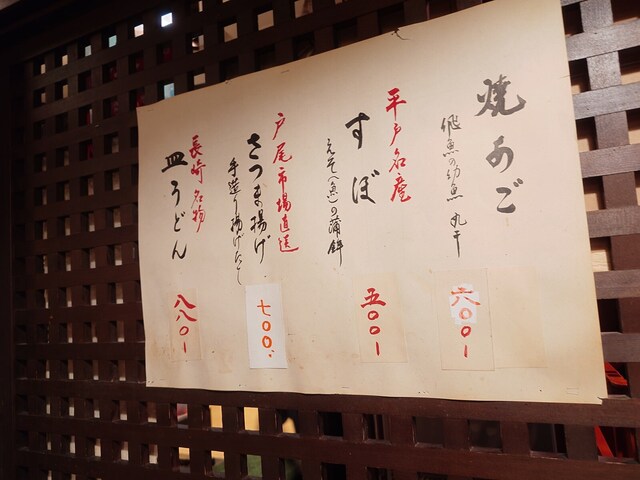 焼あご
飛魚の幼魚 丸干
六〇〇ー
平戸名産
すぼ
えそ(魚)の蒲鉾
五〇〇ー
戸尾市場直送
さつま揚げ
手造り揚げたて
七〇〇.
長崎名物
皿うどん
八八〇ー